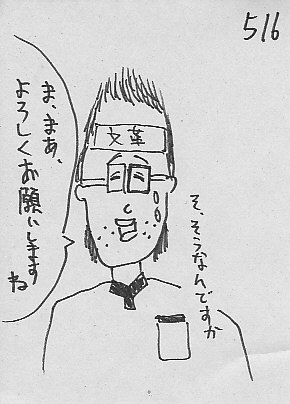 516
ま、まあ、
よろしくお願いします
ね
文革
そ、そうなんですか